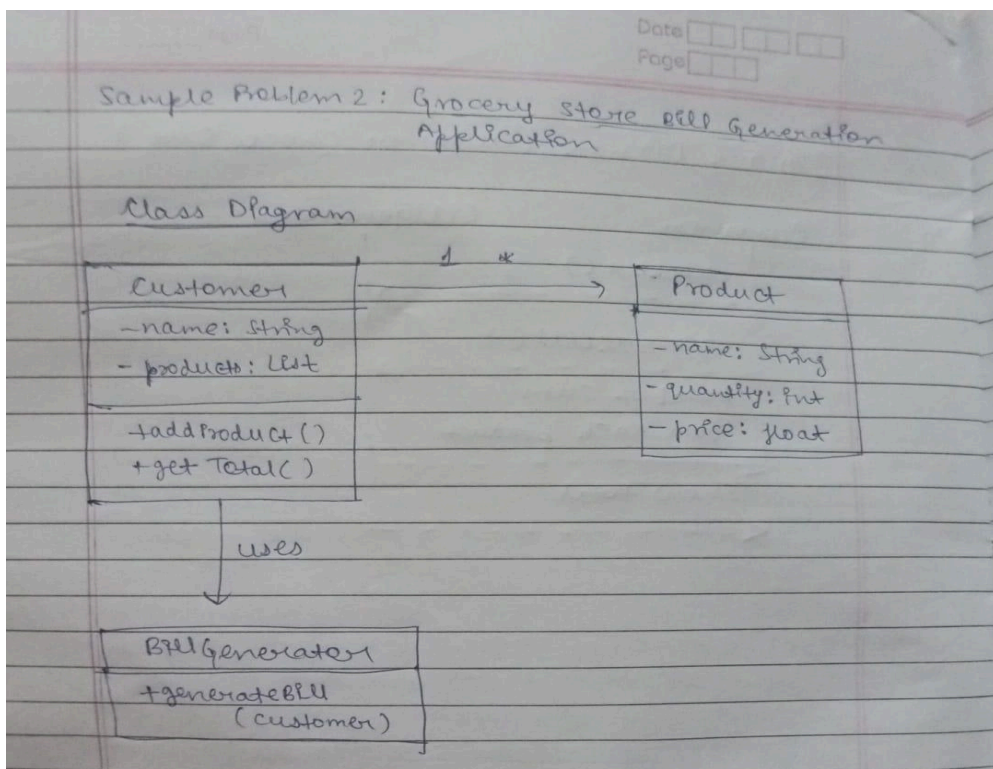 Date
Page
Sample Problem 2: Grocery Store Bill Generation
Application
Class Diagram
1 *
Customer
-name: String
- products: List
+addProduct()
+get Total()
Product
-name: String
- quantity: int
- price: float
uses
BillGenerator
+generateBill
(customer)